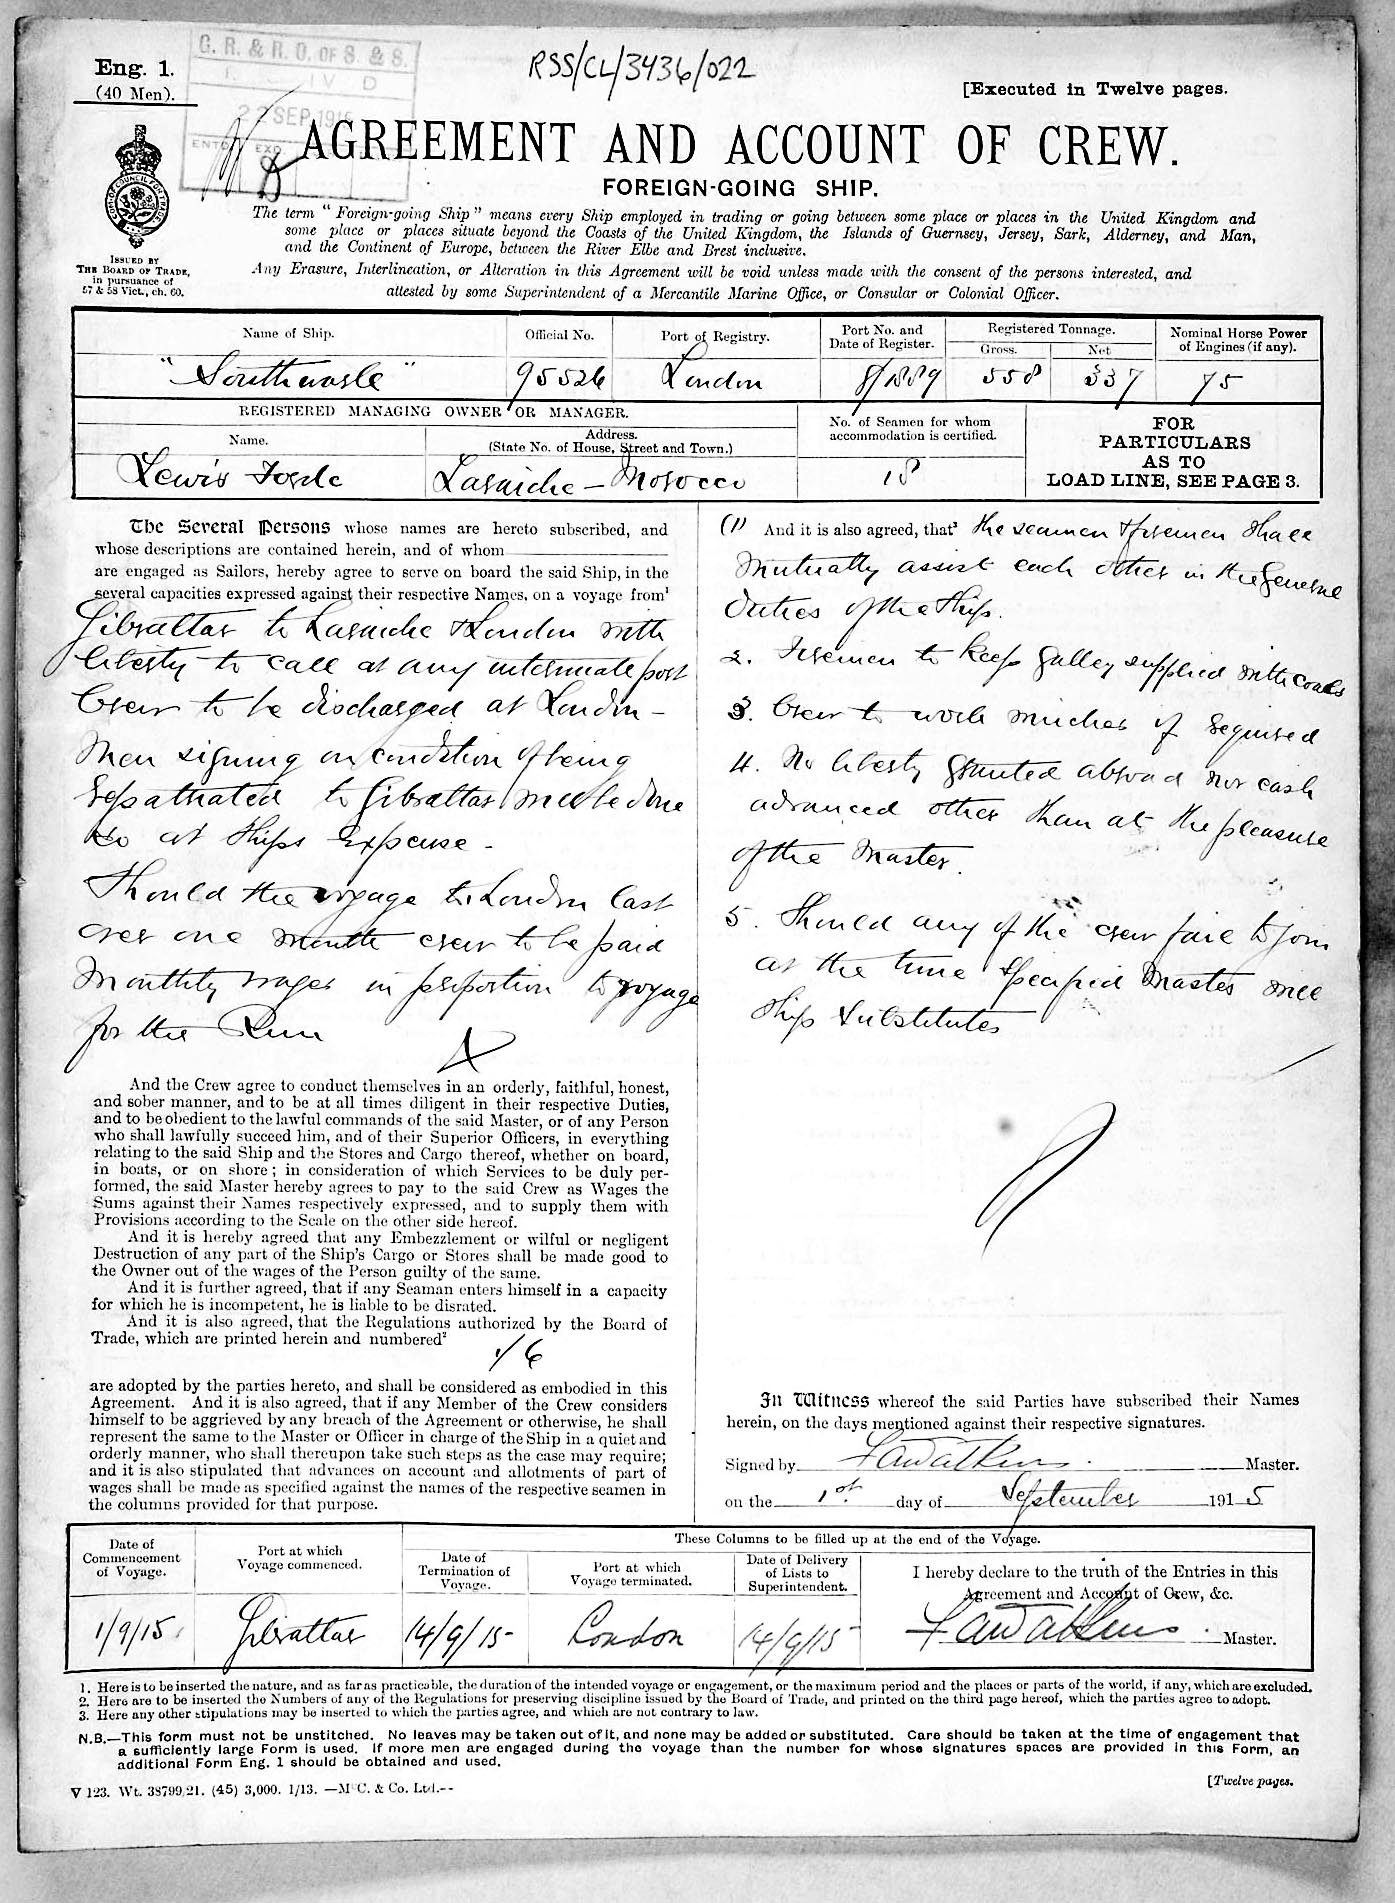 G. R. & R. O. OF S. & S.
IV D
22 SEP 1915
ENTD EXD
RSS/CL/3436/022
Eng. 1.
(40 Men).
[Executed in Twelve pages.
AGREEMENT AND ACCOUNT OF CREW.
FOREIGN-GOING SHIP.
ISSUED BY
THE BOARD OF TRADE,
in pursuance of
57 & 58 Vict., ch. 60.
The term "Foreign-going Ship" means every Ship employed in trading or going between some place or places in the United Kingdom and
some place or places situate beyond the Coasts of the United Kingdom, the Islands of Guernsey, Jersey, Sark, Alderney, and Man,
and the Continent of Europe, between the River Elbe and Brest inclusive.
Any Erasure, Interlineation, or Alteration in this Agreement will be void unless made with the consent of the persons interested, and
attested by some Superintendent of a Mercantile Marine Office, or Consular or Colonial Officer.
Name of Ship. Official No. Port of Registry. Port No. and Date of Register. Registered Tonnage. Gross. Net Nominal Horse Power of Engines (if any).
95526 London 8/1889 558 337 75
REGISTERED MANAGING OWNER OR MANAGER.
Name. Address. (State No. of House, Street and Town.)
No. of Seamen for whom accommodation is certified.
Lewis Forde Laraiche – Morocco 18
FOR
PARTICULARS
AS TO
LOAD LINE, SEE PAGE 3.
The Several Persons whose names are hereto subscribed, and
whose descriptions are contained herein, and of whom
are engaged as Sailors, hereby agree to serve on board the said Ship, in the
several capacities expressed against their respective Names, on a voyage from1
Gibraltar to Laraiche & London with
liberty to call at any intermiate port
Crew to be discharged at London –
Men signing on condition of being
repatriated to Gibraltar will be done
so at Ships Expense –
Should the voyage to London last
over one month crew to be paid
Monthly wages in proportion to voyage
for the Run
And the Crew agree to conduct themselves in an orderly, faithful, honest,
and sober manner, and to be at all times diligent in their respective Duties,
and to be obedient to the lawful commands of the said Master, or of any Person
who shall lawfully succeed him, and of their Superior Officers, in everything
relating to the said Ship and the Stores and Cargo thereof, whether on board,
in boats, or on shore; in consideration of which Services to be duly per-
formed, the said Master hereby agrees to pay to the said Crew as Wages the
Sums against their Names respectively expressed, and to supply them with
Provisions according to the Scale on the other side hereof.
And it is hereby agreed that any Embezzlement or wilful or negligent
Destruction of any part of the Ship's Cargo or Stores shall be made good to
the Owner out of the wages of the Person guilty of the same.
And it is further agreed, that if any Seaman enters himself in a capacity
for which he is incompetent, he is liable to be disrated.
And it is also agreed, that the Regulations authorized by the Board of
Trade, which are printed herein and numbered2
1/6
are adopted by the parties hereto, and shall be considered as embodied in this
Agreement. And it is also agreed, that if any Member of the Crew considers
himself to be aggrieved by any breach of the Agreement or otherwise, he shall
represent the same to the Master or Officer in charge of the Ship in a quiet and
orderly manner, who shall thereupon take such steps as the case may require;
and it is also stipulated that advances on account and allotments of part of
wages shall be made as specified against the names of the respective seamen in
the columns provided for that purpose.
(1) And it is also agreed, that3 the seamen & firemen shall
mutually assist each other in the General
duties of the Ship.
2. Firemen to keep galley supplied with coals
3. Crew to work winches if required
4. No liberty granted abroad nor cash
advanced other than at the pleasure
of the Master.
5. Should any of the crew fail to join
at the time specified Master will
ship substitutes
In Witness whereof the said Parties have subscribed their Names
herein, on the days mentioned against their respective signatures.
Signed by Watkins. Master.
on the 1st. day of September 1915
Date of Commencement of Voyage. Port at which Voyage commenced. These Columns to be filled up at the end of the Voyage.
Date of Termination of Voyage. Port at which Voyage terminated. Date of Delivery of Lists to Superintendent. I hereby declare to the truth of the Entries in this Agreement and Account of Crew, &c.
1/9/15 Gibraltar 14/9/15 London 14/9/15 Watkins. Master.
1. Here is to be inserted the nature, and as far as practicable, the duration of the intended voyage or engagement, or the maximum period and the places or parts of the world, if any, which are excluded.
2. Here are to be inserted the Numbers of any of the Regulations for preserving discipline issued by the Board of Trade, and printed on the third page hereof, which the parties agree to adopt.
3. Here any other stipulations may be inserted to which the parties agree, and which are not contrary to law.
N.B.—This form must not be unstitched. No leaves may be taken out of it, and none may be added or substituted. Care should be taken at the time of engagement that
a sufficiently large Form is used. If more men are engaged during the voyage than the number for whose signatures spaces are provided in this Form, an
additional Form Eng. 1 should be obtained and used.
[Twelve pages.
V 123. Wt. 38799/21. (45) 3,000. 1/13. —McC. & Co. Ltd.--